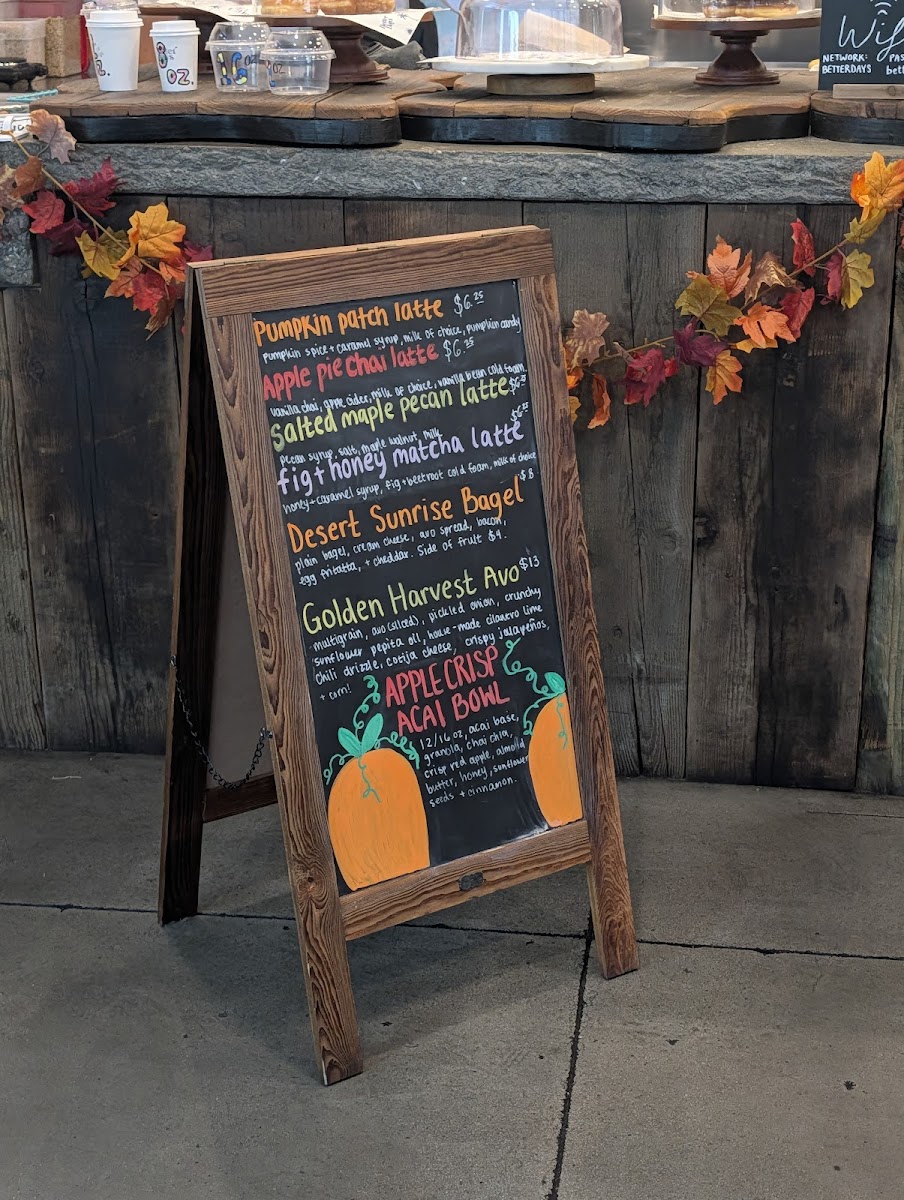 z.
8 oz.
Wifi
NETWORK:
BETTERDAYS
Pumpkin patch latte $6.25
pumpkin spice + caramel syrup, milk of choice, pumpkin candy
Apple pie chai latte $6.25
vanilla chai, apple cider, milk of choice, vanilla bean cold foam.
Salted maple pecan latte
pecan syrup, salt, maple walnut, milk
fig + honey matcha latte
honey + caramel syrup, fig + beetroot cold foam, milk of choice
Desert Sunrise Bagel $8
plain bagel, cream cheese, avo spread, bacon,
egg fritatta, + cheddar. Side of fruit $4.
Golden Harvest Avo $13
multigrain, avo (sliced), pickled onion, crunchy
sunflower pepita oil, house-made cilantro lime
chili drizzle, cotija cheese, crispy jalapeños,
+ corn!
APPLE CRISP
ACAI BOWL
12/16 oz, acai base,
granola, chai chia,
crisp red apple, almond
butter, honey, sunflower
seeds + cinnamon.